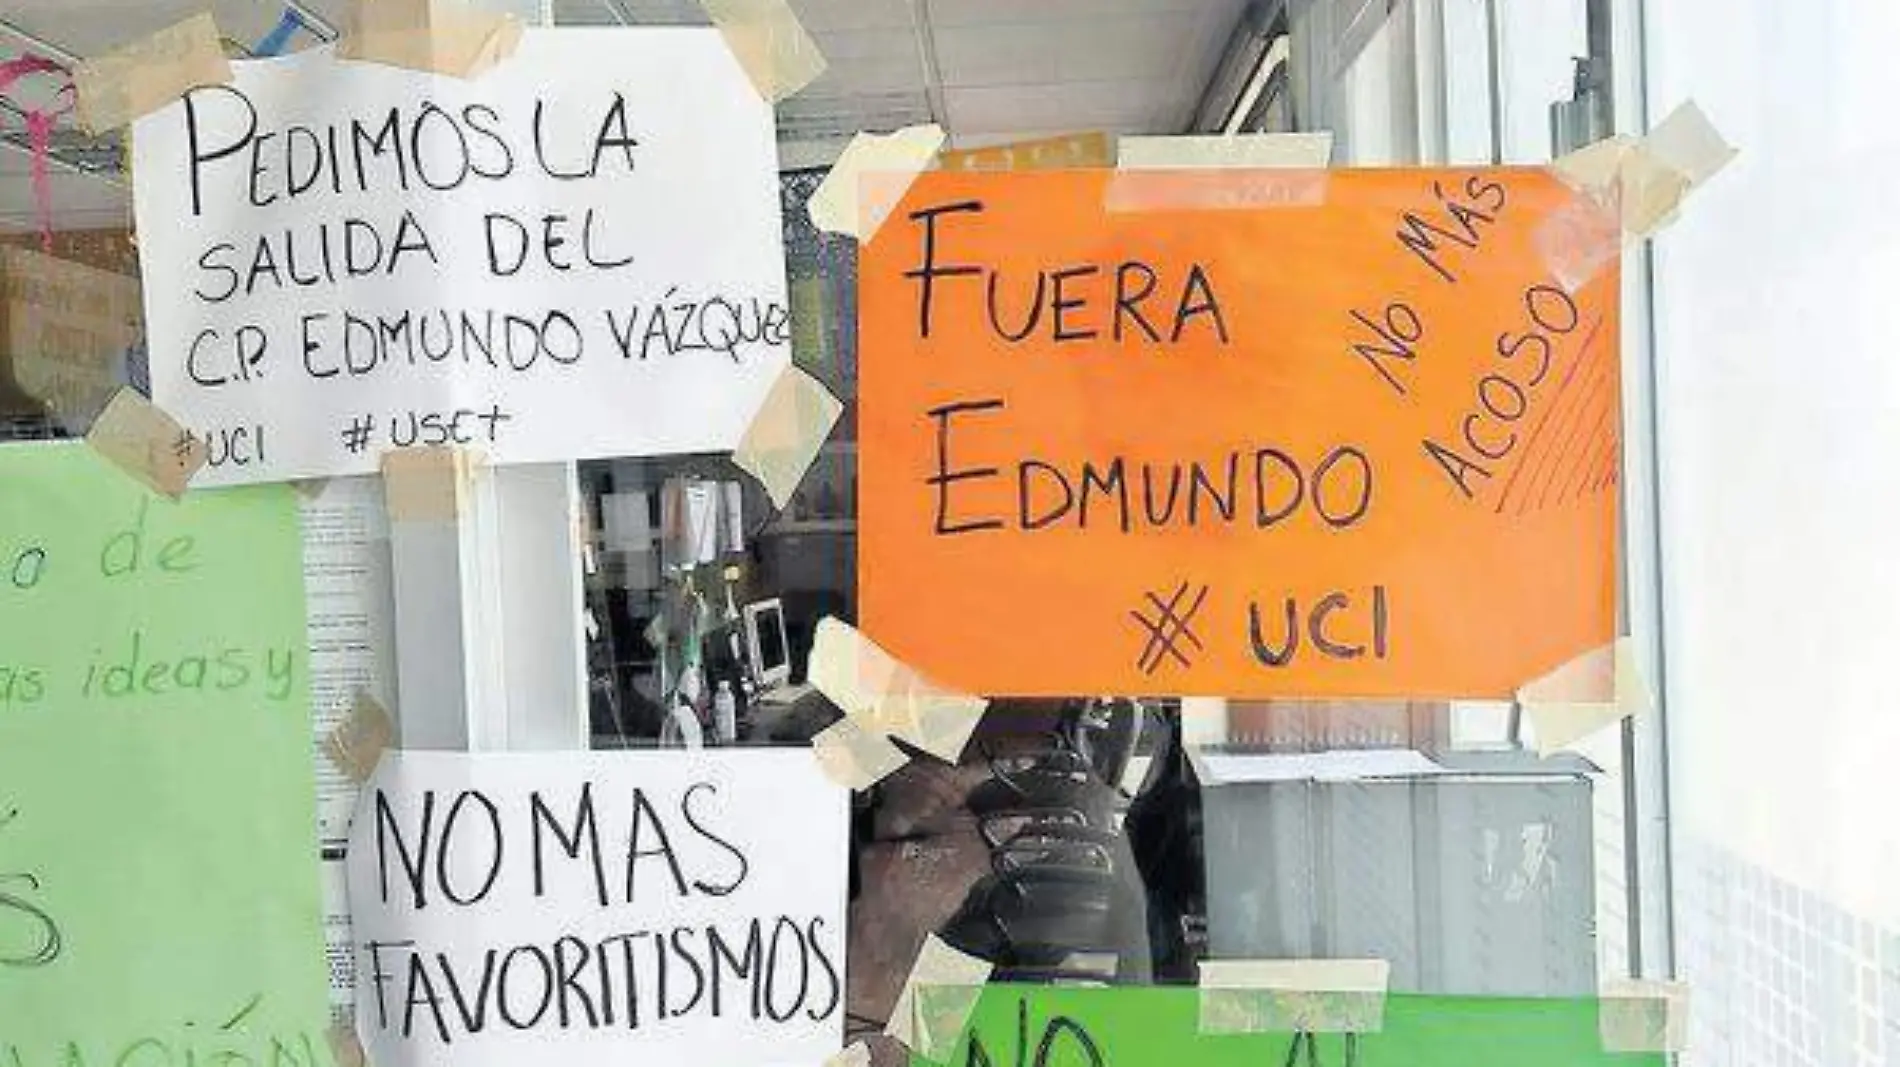 PEDIMOS LA
SALIDA DEL
C.P. EDMUNDO VÁZQUEZ
#UCI #USET
FUERA
EDMUNDO
#UCI
NO MÁS
ACOSO
o de
as ideas y
S
ACIÓN
NO MAS
FAVORITISMOS
NO AL